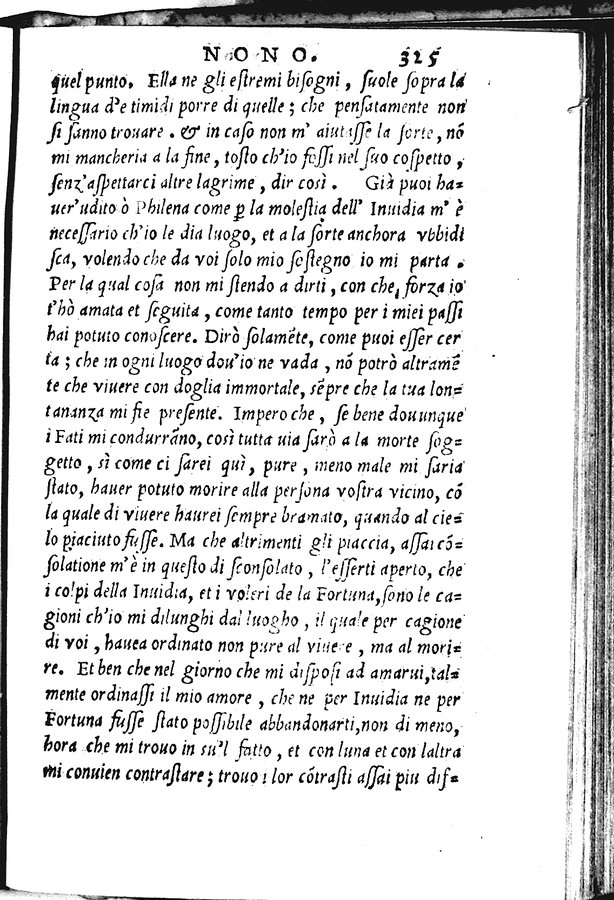 NONO. 325
quel punto. Ella ne gli eſtremi biſogni, ſuole ſopra la
lingua d'e timidi porre di quelle; che penſatamente non
ſi ſanno trouare. & in caſo non m' aiutaſſe la ſorte, nõ
mi mancheria a la fine, toſto ch'io foſſi nel ſuo coſpetto,
ſenz'aſpettarci altre lagrime, dir così. Già puoi ha=
uer'udito ò Philena come ꝑ la moleſtia dell' Inuidia m' è
neceſſario ch'io le dia luogo, et a la ſorte anchora vbbidi
ſca, volendo che da voi ſolo mio ſoſtegno io mi parta.
Per la qual coſa non mi ſtendo a dirti, con che forza io
t'hò amata et ſeguita, come tanto tempo per i miei paſſi
hai potuto conoſcere. Dirò ſolamẽte, come puoi eſſer cer
ta; che in ogni luogo dou'io ne vada, nõ potrò altramẽ
te che viuere con doglia immortale, sẽpre che la tua lon=
tananza mi fie preſente. Impero che, ſe bene douunque
i Fati mi condurrãno, così tutta uia ſarò a la morte ſog=
getto, sì come ci ſarei quì, pure, meno male mi ſaria
ſtato, hauer potuto morire alla perſona voſtra vicino, cõ
la quale di viuere haurei ſempre bramato, quando al cie=
lo piaciuto fuſſe. Ma che altrimenti gli piaccia, aſſai cõ=
ſolatione m'è in queſto di ſconſolato, l'eſſerti aperto, che
i colpi della Inuidia, et i voleri de la Fortuna, ſono le ca=
gioni ch'io mi dilunghi dal luogho, il quale per cagione
di voi, hauea ordinato non pure al viuere, ma al mori=
re. Et ben che nel giorno che mi diſpoſi ad amarui, tal=
mente ordinaſſi il mio amore, che ne per Inuidia ne per
Fortuna fuſſe ſtato poſſibile abbandonarti, non di meno,
hora che mi trouo in su'l fatto, et con luna et con laltra
mi conuien contraſtare; trouo i lor cõtraſti aſſai piu dif=